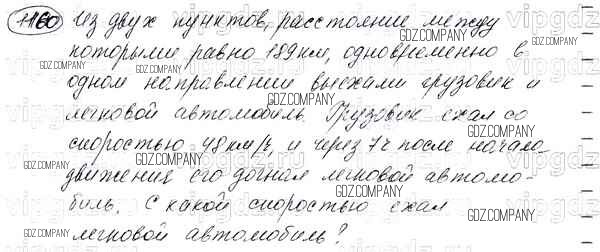 1160 Из двух пунктов, расстояние между
которыми равно 189 км, одновременно в
одном направлении выехали грузовик и
легковой автомобиль. Грузовик ехал со
скоростью 48 км/ч, и через 7 ч после начала
движения его догнал легковой автомо-
биль. С какой скоростью ехал
легковой автомобиль?
GDZ.COMPANY
GDZ.COMPANY
GDZ.COMPANY
GDZ.COMPANY
GDZ.COMPANY
GDZ.COMPANY
GDZ.COMPANY
GDZ.COMPANY
GDZ.COMPANY
GDZ.COMPANY
GDZ.COMPANY